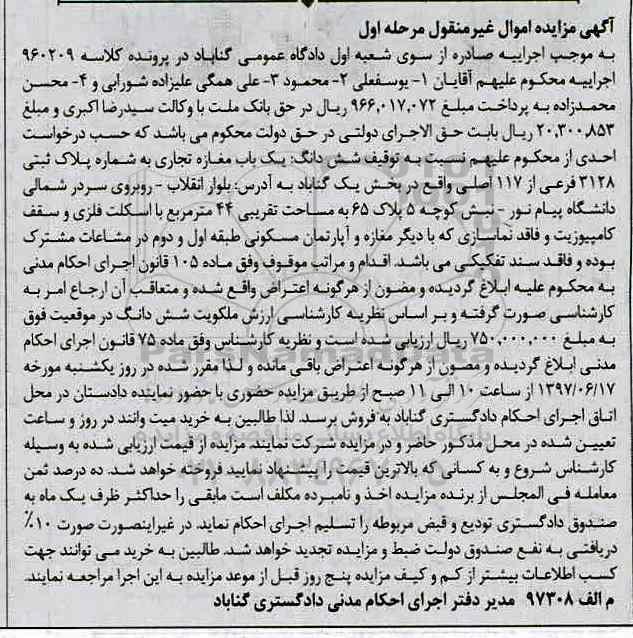 آگهی مزایده اموال غیرمنقول مرحله اول
به موجب اجراییه صادره از سوی شعبه اول دادگاه عمومی گناباد در پرونده کلاسه ۹۶۰۲۰۹
اجراییه محکوم علیهم آقایان ۱- یوسفعلی ۲- محمود ۳- علی همگی علیزاده شورابی و ۴- محسن
محمدزاده به پرداخت مبلغ ۹۶۶,۰۱۷,۰۷۲ ریال در حق بانک ملت با وکالت سیدرضا اکبری و مبلغ
۲۰,۳۰۰,۸۵۳ ریال بابت حق الاجرای دولتی در حق دولت محکوم می باشد که حسب درخواست
احدی از محکوم علیهم نسبت به توقیف شش دانگ: یک باب مغازه تجاری به شماره پلاک ثبتی
۳۱۲۸ فرعی از ۱۱۷ اصلی واقع در بخش یک گناباد به آدرس: بلوار انقلاب - روبروی سردر شمالی
دانشگاه پیام نور - نبش کوچه ۵ پلاک ۶۵ به مساحت تقریبی ۴۴ مترمربع با اسکلت فلزی و سقف
کامپوزیت و فاقد نماسازی که با دیگر مغازه و آپارتمان مسکونی طبقه اول و دوم در مشاعات مشترک
بوده و فاقد سند تفکیکی می باشد. اقدام و مراتب موقوف وفق ماده ۱۰۵ قانون اجرای احکام مدنی
به محکوم علیه ابلاغ گردیده و مضون از هرگونه اعتراض واقع شده و متعاقب آن ارجاع امر به
کارشناسی صورت گرفته و بر اساس نظریه کارشناسی ارزش ملکویت شش دانگ در موقعیت فوق
به مبلغ ۷۵۰,۰۰۰,۰۰۰ ریال ارزیابی شده است و نظریه کارشناس وفق ماده ۷۵ قانون اجرای احکام
مدنی ابلاغ گردیده و مصون از هرگونه اعتراض باقی مانده و لذا مقرر شده در روز یکشنبه مورخه
۱۳۹۷/۰۶/۱۷ از ساعت ۱۰ الی ۱۱ صبح از طریق مزایده حضوری با حضور نماینده دادستان در محل
اتاق اجرای احکام دادگستری گناباد به فروش برسد. لذا طالبین به خرید میت وانند در روز و ساعت
تعیین شده در محل مذکور حاضر و در مزایده شرکت نمایند. مزایده از قیمت ارزیابی شده به وسیله
کارشناس شروع و به کسانی که بالاترین قیمت را پیشنهاد نمایید فروخته خواهد شد. ده درصد ثمن
معامله فی المجلس از برنده مزایده اخذ و نامبرده مکلف است مابقی را حداکثر ظرف یک ماه به
صندوق دادگستری تودیع و قبض مربوطه را تسلیم اجرای احکام نماید. در غیراینصورت صورت ۱۰٪
دریافتی به نفع صندوق دولت ضبط و مزایده تجدید خواهد شد. طالبین به خرید می توانند جهت
کسب اطلاعات بیشتر از کم و کیف مزایده پنج روز قبل از موعد مزایده به این اجرا مراجعه نمایند.
م الف ۹۷۳۰۸ مدیر دفتر اجرای احکام مدنی دادگستری گناباد